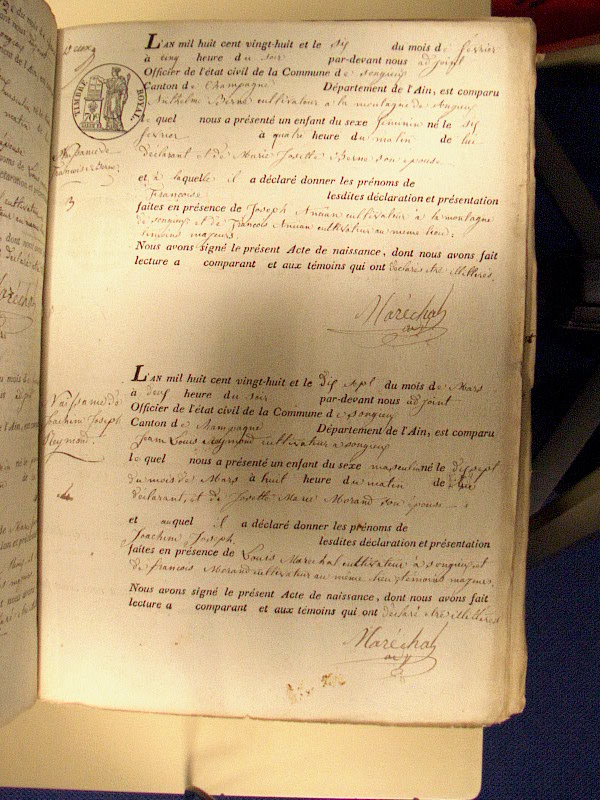 TIMBRE ROYAL
70
LAN mil huit cent vingt-huit et le six du mois de février
à cinq heure du soir par-devant nous adjoint
Officier de l'état civil de la Commune de songieu
Canton de Champagne Département de l'Ain, est comparu
Berne cultivateur a la montagne de songieu
le quel nous a présenté un enfant du sexe féminin né le six
février à quatre heure du matin de lui
déclarant et de Marie Josette Berne son épouse
et à laquelle il a déclaré donner les prénoms de
Françoise lesdites déclaration et présentation
faites en présence de Joseph cultivateur à la montagne
de songieu et de François cultivateur au même lieu,
témoins majeurs.
Nous avons signé le présent Acte de naissance, dont nous avons fait
lecture a comparant et aux témoins qui ont déclaré être illitérés
Maréchal
adj
Naissance de
Joachim Joseph
Reymond.
4
LAN mil huit cent vingt-huit et le dix sept du mois de Mars
à deux heure du soir par-devant nous adjoint
Officier de l'état civil de la Commune de songieu
Canton de Champagne Département de l'Ain, est comparu
Jean Louis Reymond cultivateur a songieu
le quel nous a présenté un enfant du sexe masculin né le dix sept
du mois de Mars à huit heure du matin de lui
déclarant, et de Josette Marie Morand son épouse
et auquel il a déclaré donner les prénoms de
Joachim Joseph, lesdites déclaration et présentation
faites en présence de Louis Marechal cultivateur à songieu, et
de françois Morand cultivateur au même lieu, témoins majeurs.
Nous avons signé le présent Acte de naissance, dont nous avons fait
lecture a comparant et aux témoins qui ont déclaré être illitérés
Maréchal
adj